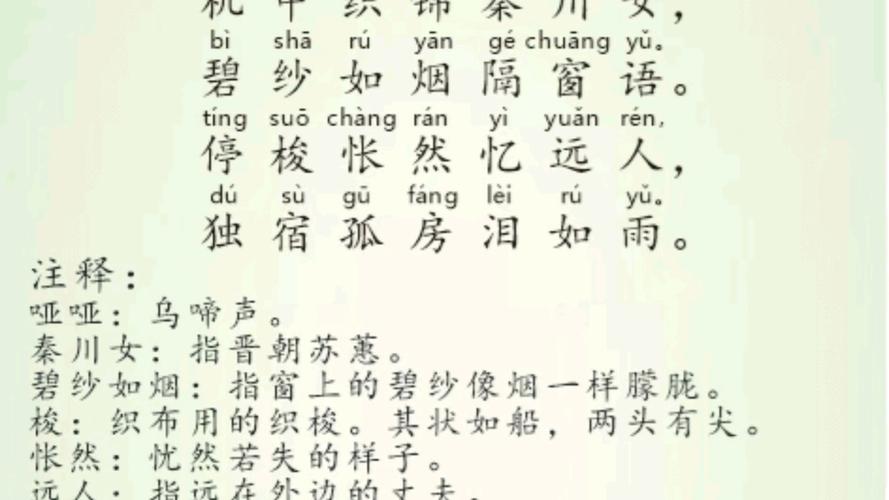 机中织锦秦川女，
bì shā rú yān gé chuāng yǔ。
碧纱如烟隔窗语。
tíng suō chàng rán yì yuǎn rén,
停梭怅然忆远人，
dú sù gū fáng lèi rú yǔ。
独宿孤房泪如雨。
注释：
哑哑：乌啼声。
秦川女：指晋朝苏蕙。
碧纱如烟：指窗上的碧纱像烟一样朦胧。
梭：织布用的织梭。其状如船，两头有尖。
怅然：忧然若失的样子。
远人：指远在外边的丈夫。